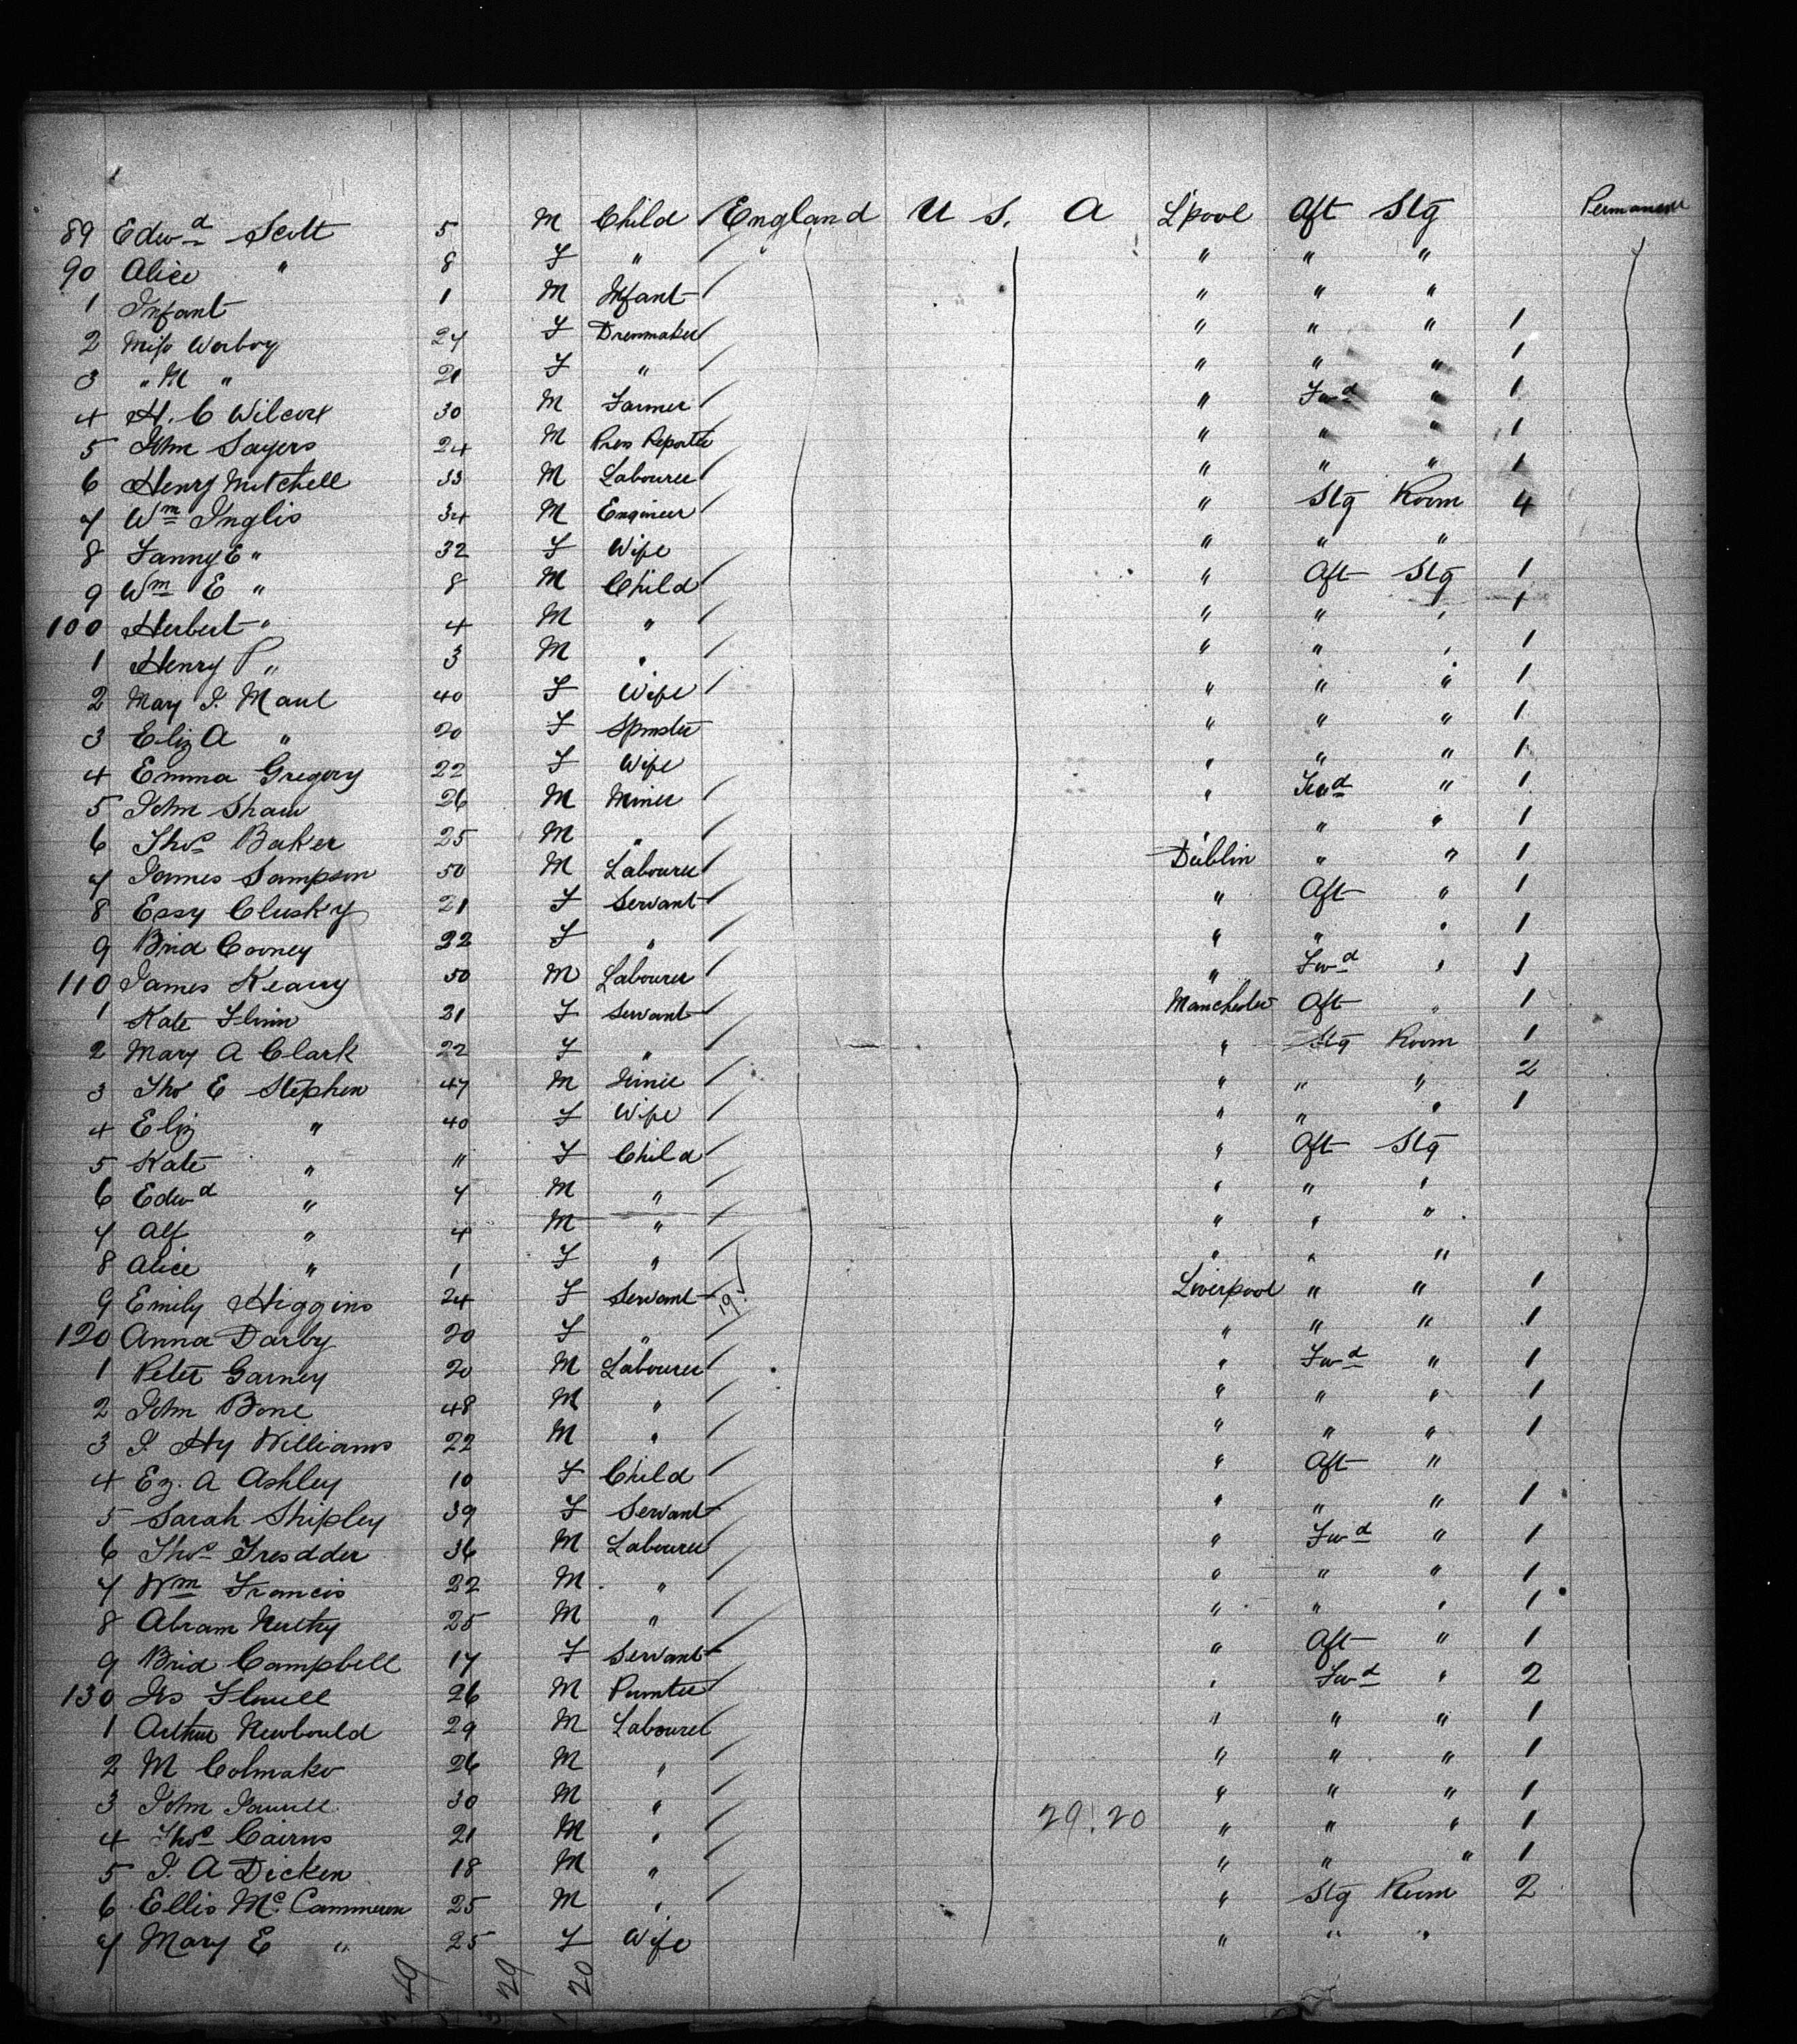 89 Edwd Scott 5 M Child England U S. A L'pool Aft Stg Permanent
90 Alice " 8 F " " " "
1 Infant 1 M Infant " " "
2 Miss Worboy 24 F Dressmaker " " " 1
3 " M " 21 F " " " " 1
4 H. C Wilcox 30 M Farmer " Fwd " 1
5 John Sayers 24 M Press Reporter " " " 1
6 Henry Mitchell 33 M Labourer " " " 1
7 Wm Inglis 34 M Engineer " Stg Room 4
8 Fanny E " 32 F Wife " " "
9 Wm E " 8 M Child " Aft Stg 1
100 Herbert " 4 M " " " " 1
1 Henry P " 3 M " " " " 1
2 Mary J. Maul 40 F Wife " " " 1
3 Eliz A " 20 F Spinster " " " 1
4 Emma Gregory 22 F Wife " " " 1
5 John Shaw 26 M Miner " Fwd " 1
6 Thos Baker 25 M " " " " 1
7 James Sampson 50 M Labourer Dublin " " 1
8 Essy Clusky 21 F Servant " Aft " 1
9 Brid Cooney 22 F " " " " 1
110 James Keary 50 M Labourer " Fwd " 1
1 Kate Flinn 21 F Servant Manchester Aft " 1
2 Mary A Clark 22 F " " Stg Room 1
3 Tho E Stephen 47 M " " " 2
4 Eliz " 40 F Wife " " " 1
5 Kate " " F Child " Aft Stg
6 Edwd " 7 M " " " "
7 Alf " 4 M " " " "
8 Alice " 1 F " " " "
9 Emily Higgins 24 F Servant 19 Liverpool " " 1
120 Anna Darby 20 F " " " " 1
1 Peter Garney 20 M Labourer " Fwd " 1
2 John Bone 48 M " " " " 1
3 J. Hy Williams 22 M " " " " 1
4 Ez. A Ashley 10 F Child " Aft "
5 Sarah Shipley 39 F Servant " " " 1
6 Thos Tresdder 36 M Labourer " Fwd " 1
7 Wm Francis 22 M " " " " 1
8 Abram 25 M " " " " 1
9 Brid Campbell 17 F Servant " Aft " 1
130 26 M " Fwd " 2
1 Arthur Newbould 29 M Labourer " " " 1
2 M Colmako 26 M " " " " 1
3 John 30 M " " " " 1
4 Thos Cairns 21 M " 29.20 " " " 1
5 J. A Dicken 18 M " " " " 1
6 Ellis Mc Cammeron 25 M " " Stg Room 2
7 Mary E " 25 F Wife " " "
49 29 20